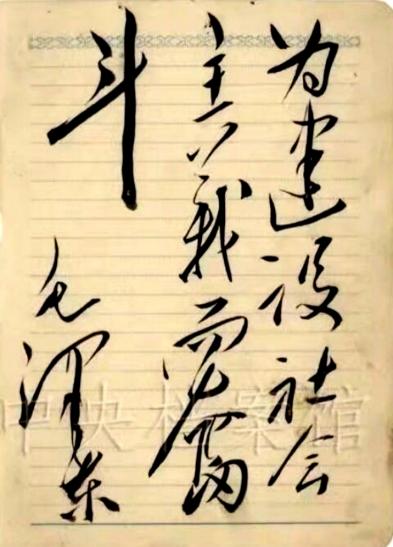 为建设社会
主义而奋
斗
毛泽东
中央档案馆